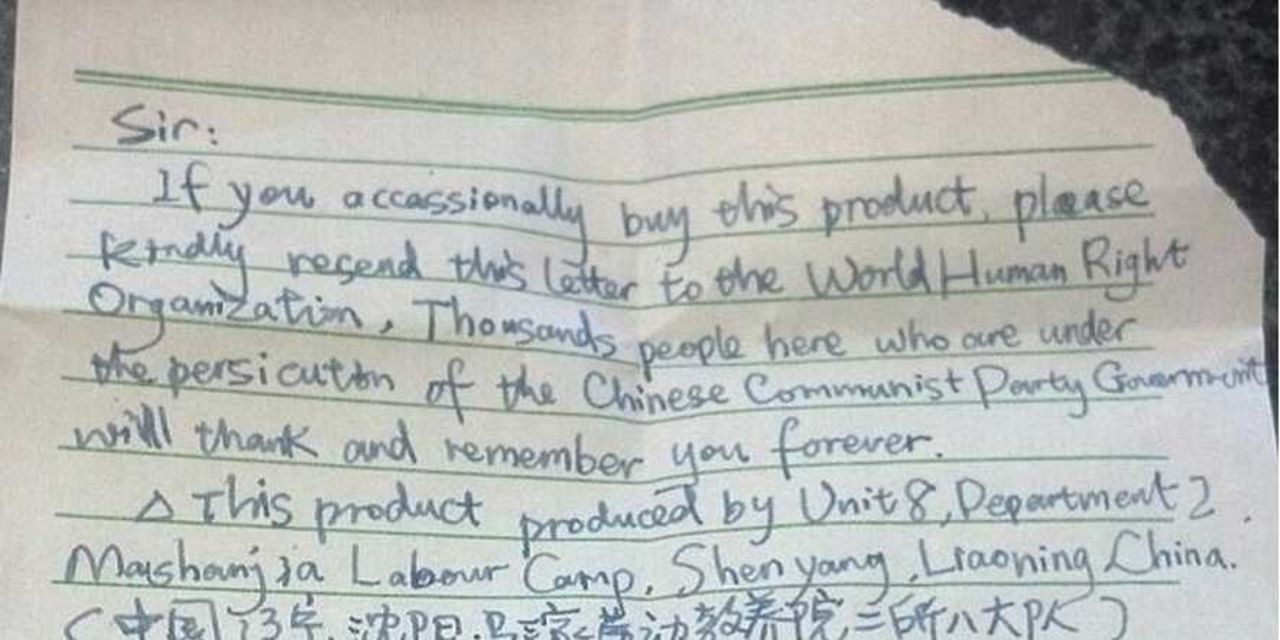 Sir:
If you accassionally buy this product, please
kindly resend this letter to the World Human Right
Organization, Thousands people here who are under
the persicution of the Chinese Communist Party Government
will thank and remember you forever.
△ This product produced by Unit 8, Department 2.
Mashanjia Labour Camp, Shenyang, Liaoning China.
(中国 辽宁, 沈阳, 马三家劳动教养院二所八大队)